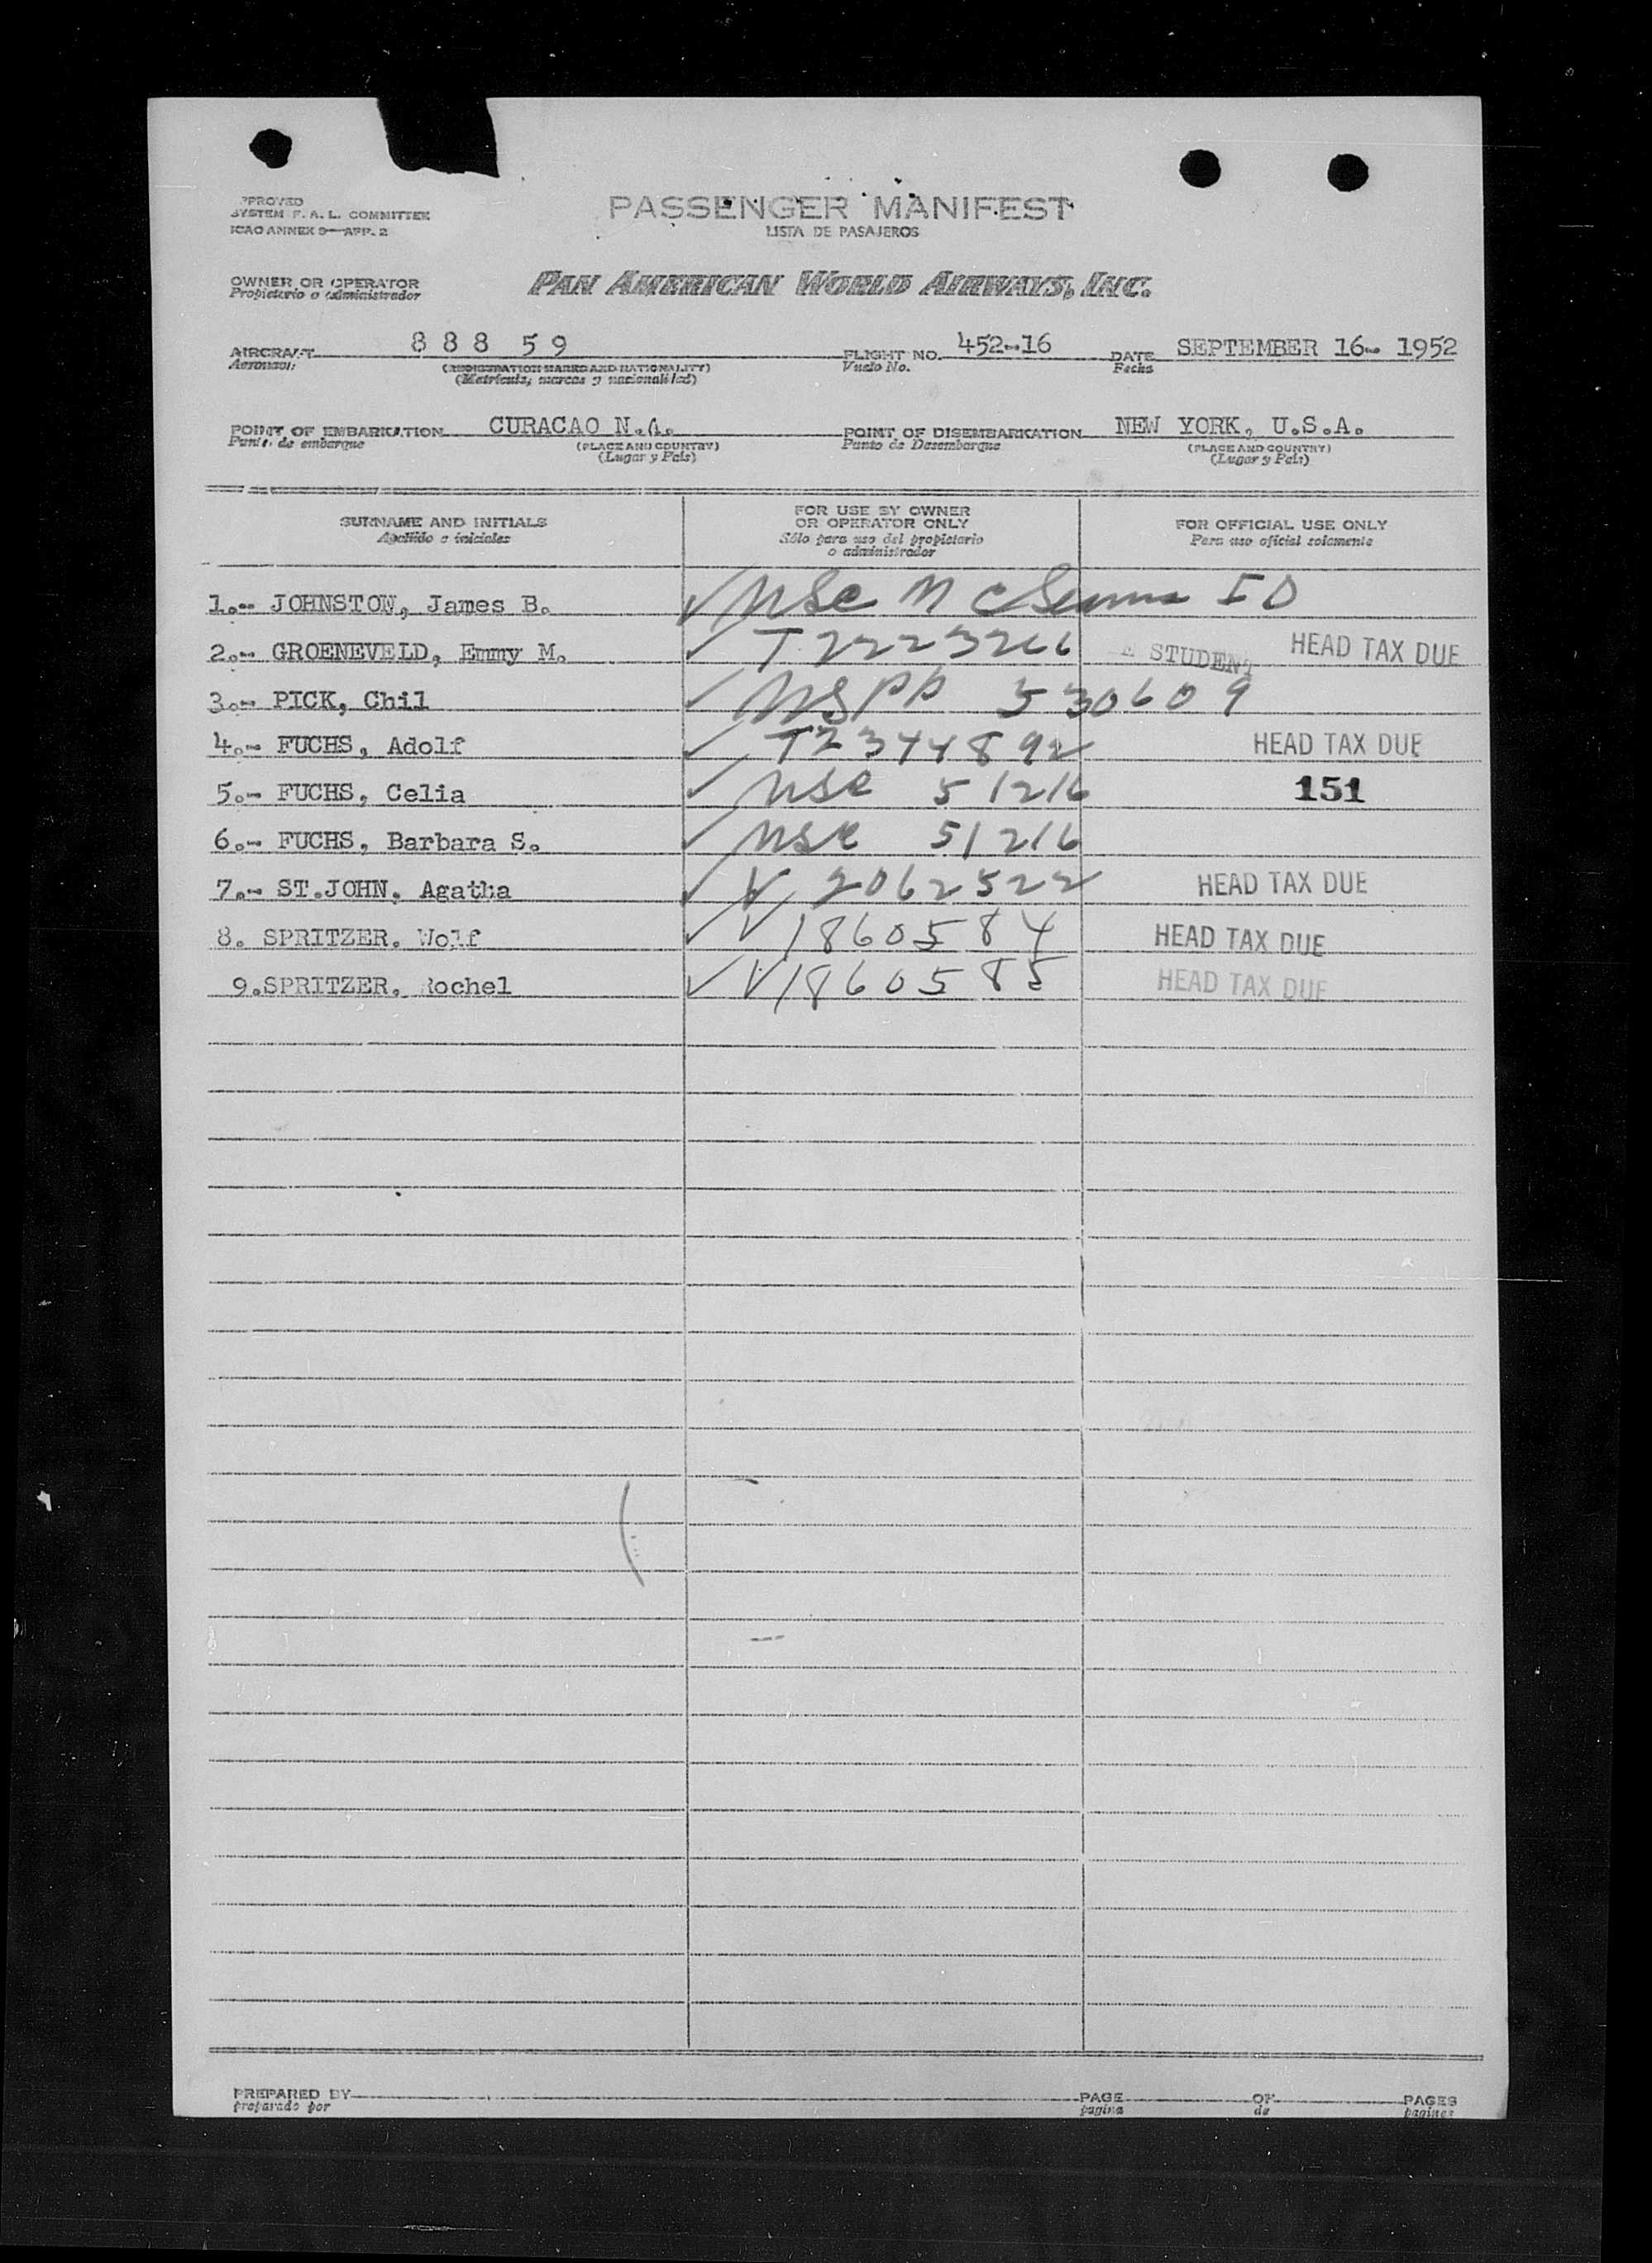 PPROVED
SYSTEM F. A. L. COMMITTEE
ICAO ANNEX 9—APP. 2
PASSENGER MANIFEST
LISTA DE PASAJEROS
OWNER OR OPERATOR
Propietario o administrador
PAN AMERICAN WORLD AIRWAYS, INC.
AIRCRAFT 8 8 8 5 9 FLIGHT NO. 452--16 DATE SEPTEMBER 16- 1952
(REGISTRATION MARKS AND NATIONALITY) Vuelo No. Fecha
(Matrícula, marcas y nacionalidad)
POINT OF EMBARKATION CURACAO N.A. POINT OF DISEMBARKATION NEW YORK, U.S.A.
Punto de embarque (PLACE AND COUNTRY) Punto de Desembarque (PLACE AND COUNTRY)
(Lugar y País) (Lugar y País)
SURNAME AND INITIALS
Apellido e iniciales
FOR USE BY OWNER
OR OPERATOR ONLY
Sólo para uso del propietario
o administrador
FOR OFFICIAL USE ONLY
Para uso oficial solamente
1.-- JOHNSTON, James B. ✓ USC ID
2.-- GROENEVELD, Emmy M. ✓ T 2223266 STUDENT HEAD TAX DUE
3.-- PICK, Chil ✓ USPP 530609
4.-- FUCHS, Adolf ✓ T2344892 HEAD TAX DUE
5.-- FUCHS, Celia ✓ USC 51216 151
6.-- FUCHS, Barbara S. ✓ USC 51216
7.-- ST.JOHN, Agatha ✓ V 2062522 HEAD TAX DUE
8. SPRITZER, Wolf ✓ V 1860584 HEAD TAX DUE
9.SPRITZER, Rochel ✓ V1860585 HEAD TAX DUE
PREPARED BY PAGE OF PAGES
preparado por pagina de paginas